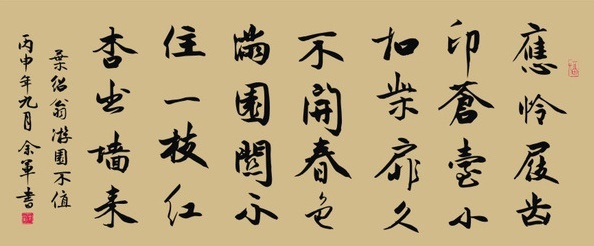 應怜屐齿
印蒼臺小
扣柴扉久
不開春色
滿園關不
住一枝红
杏出墙来
葉绍翁游園不值
丙申年九月余軍書